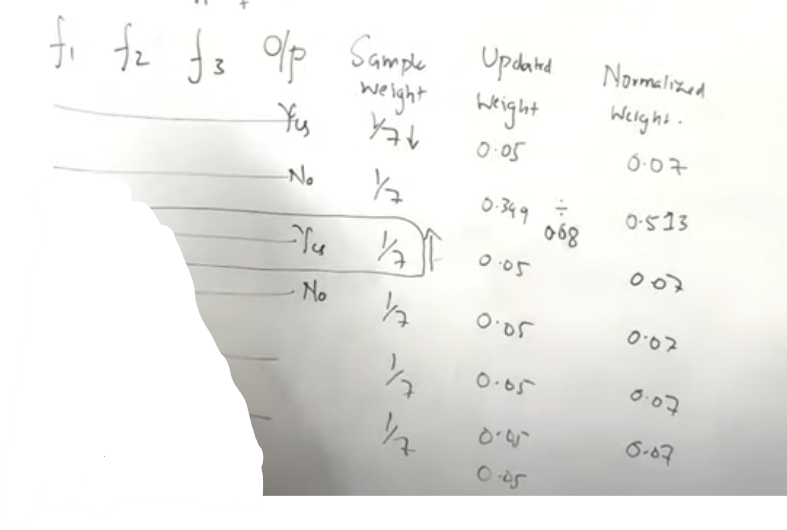 f1 f2 f3 O/p Sample Weight Updated Weight Normalized Weight.
Yes 1/7 ↓ 0.05 0.07
No 1/7 0.349 ÷ 0.68 0.513
Yes 1/7 ↑ 0.05 0.07
No 1/7 0.05 0.07
1/7 0.05 0.07
1/7 0.05 0.07
0.05